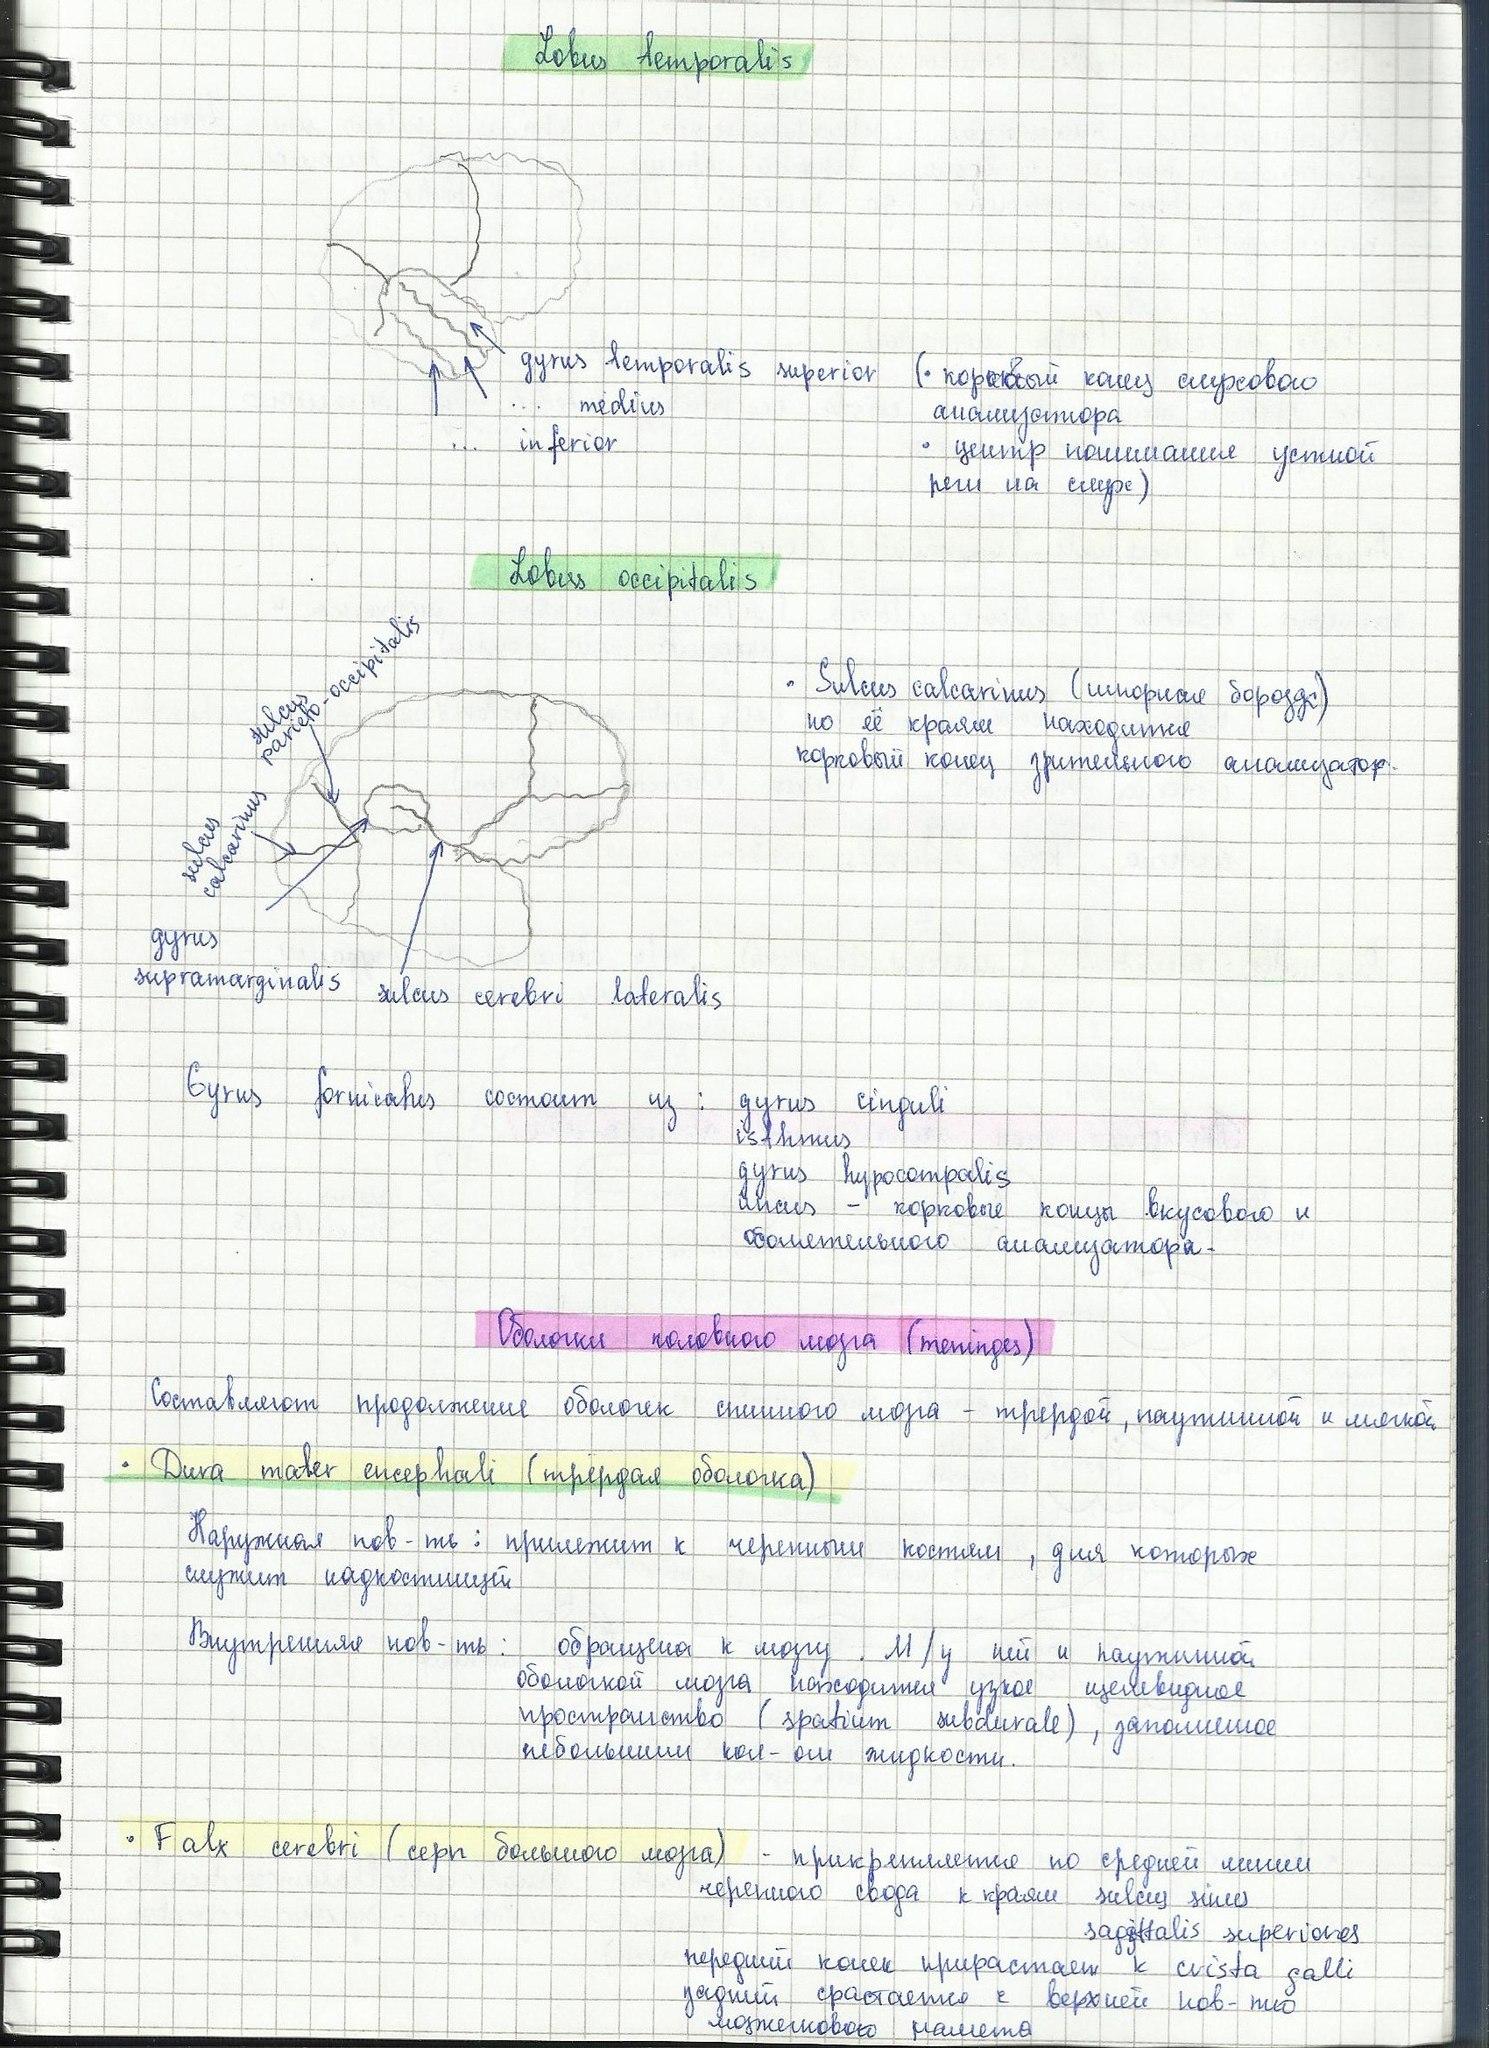 Lobus temporalis
gyrus temporalis superior (• корковый конец слухового
анализатора
... medius
• центр понимания устной
... inferior
речи на слух)
Lobus occipitalis
sulcus
parieto-occipitalis
sulcus
calcarinus
• Sulcus calcarinus (шпорная борозда)
по её краям находится
корковый конец зрительного анализатор.
gyrus
supramarginalis
sulcus cerebri lateralis
Gyrus fornicatus состоит из: gyrus cinguli
isthmus
gyrus hypocompalis
uncus - корковые концы вкусового и
обонятельного анализатора.
Оболочки головного мозга (meninges)
Составляют продолжение оболочек спинного мозга - твёрдой, паутинной и мягкой
• Dura mater encephali (твёрдая оболочка)
Наружная пов-ть: прилежит к черепным костям, для которых
служит надкостницей
Внутренняя пов-ть: обращена к мозгу. М/у ней и паутинной
оболочкой мозга находится узкое щелевидное
пространство (spatium subdurale), заполненое
небольшим кол-ом жидкости.
• Falx cerebri (серп большого мозга) - прикрепляется по средней линии
черепного свода к краям sulcus sinus
sagittalis superiores
передний конец прирастает к crista galli
задний срастается с верхней пов-тью
мозжечкового намета